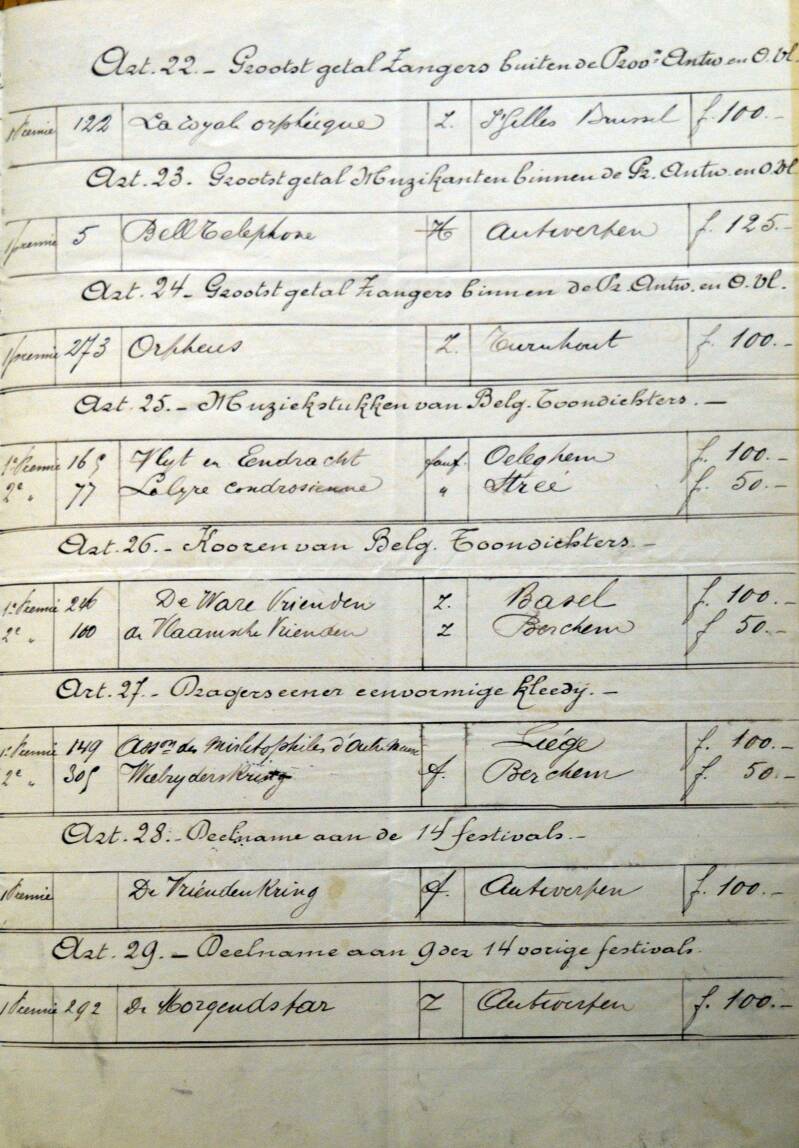 Art. 22. – Grootst getal Zangers buiten de Provn Antw en O. Vl.
1 Premie 122 La royale orphéique Z. St Gilles Brussel f. 100.–
Art. 23. Grootst getal Muzikanten binnen de Pr. Antw. en O. Vl
1 premie 5 Bell Telephone H Antwerpen f. 125.–
Art. 24 – Grootst getal Zangers binnen de Pr. Antw. en O. Vl.
1 premie 273 Orpheus Z. Turnhout f. 100.–
Art. 25. – Muziekstukken van Belg. Toondichters. –
1e Premie 165 Vlyt en Eendracht fanf. Oeleghem f. 100.–
2e " 77 La lyre condrosienne " Strée f. 50.–
Art. 26. – Kooren van Belg. Toondichters. –
1e Premie 246 De Ware Vrienden Z. Basel f. 100.–
2e " 100 de Vlaamsche Vrienden Z Berchem f 50.–
Art. 27. – Dragers eener eenvormige kleedij. –
1e Premie 149 Asson des d'Outre Meuse Liége f. 100.–
2e " 305 Wielryderskring f. Berchem f. 50.–
Art. 28. – Deelname aan de 14 festivals. –
1 Premie De Vriendenkring f. Antwerpen f. 100.–
Art. 29. – Deelname aan 9 der 14 vorige festivals.
1 Premie 292 De Morgendstar Z Antwerpen f. 100.–